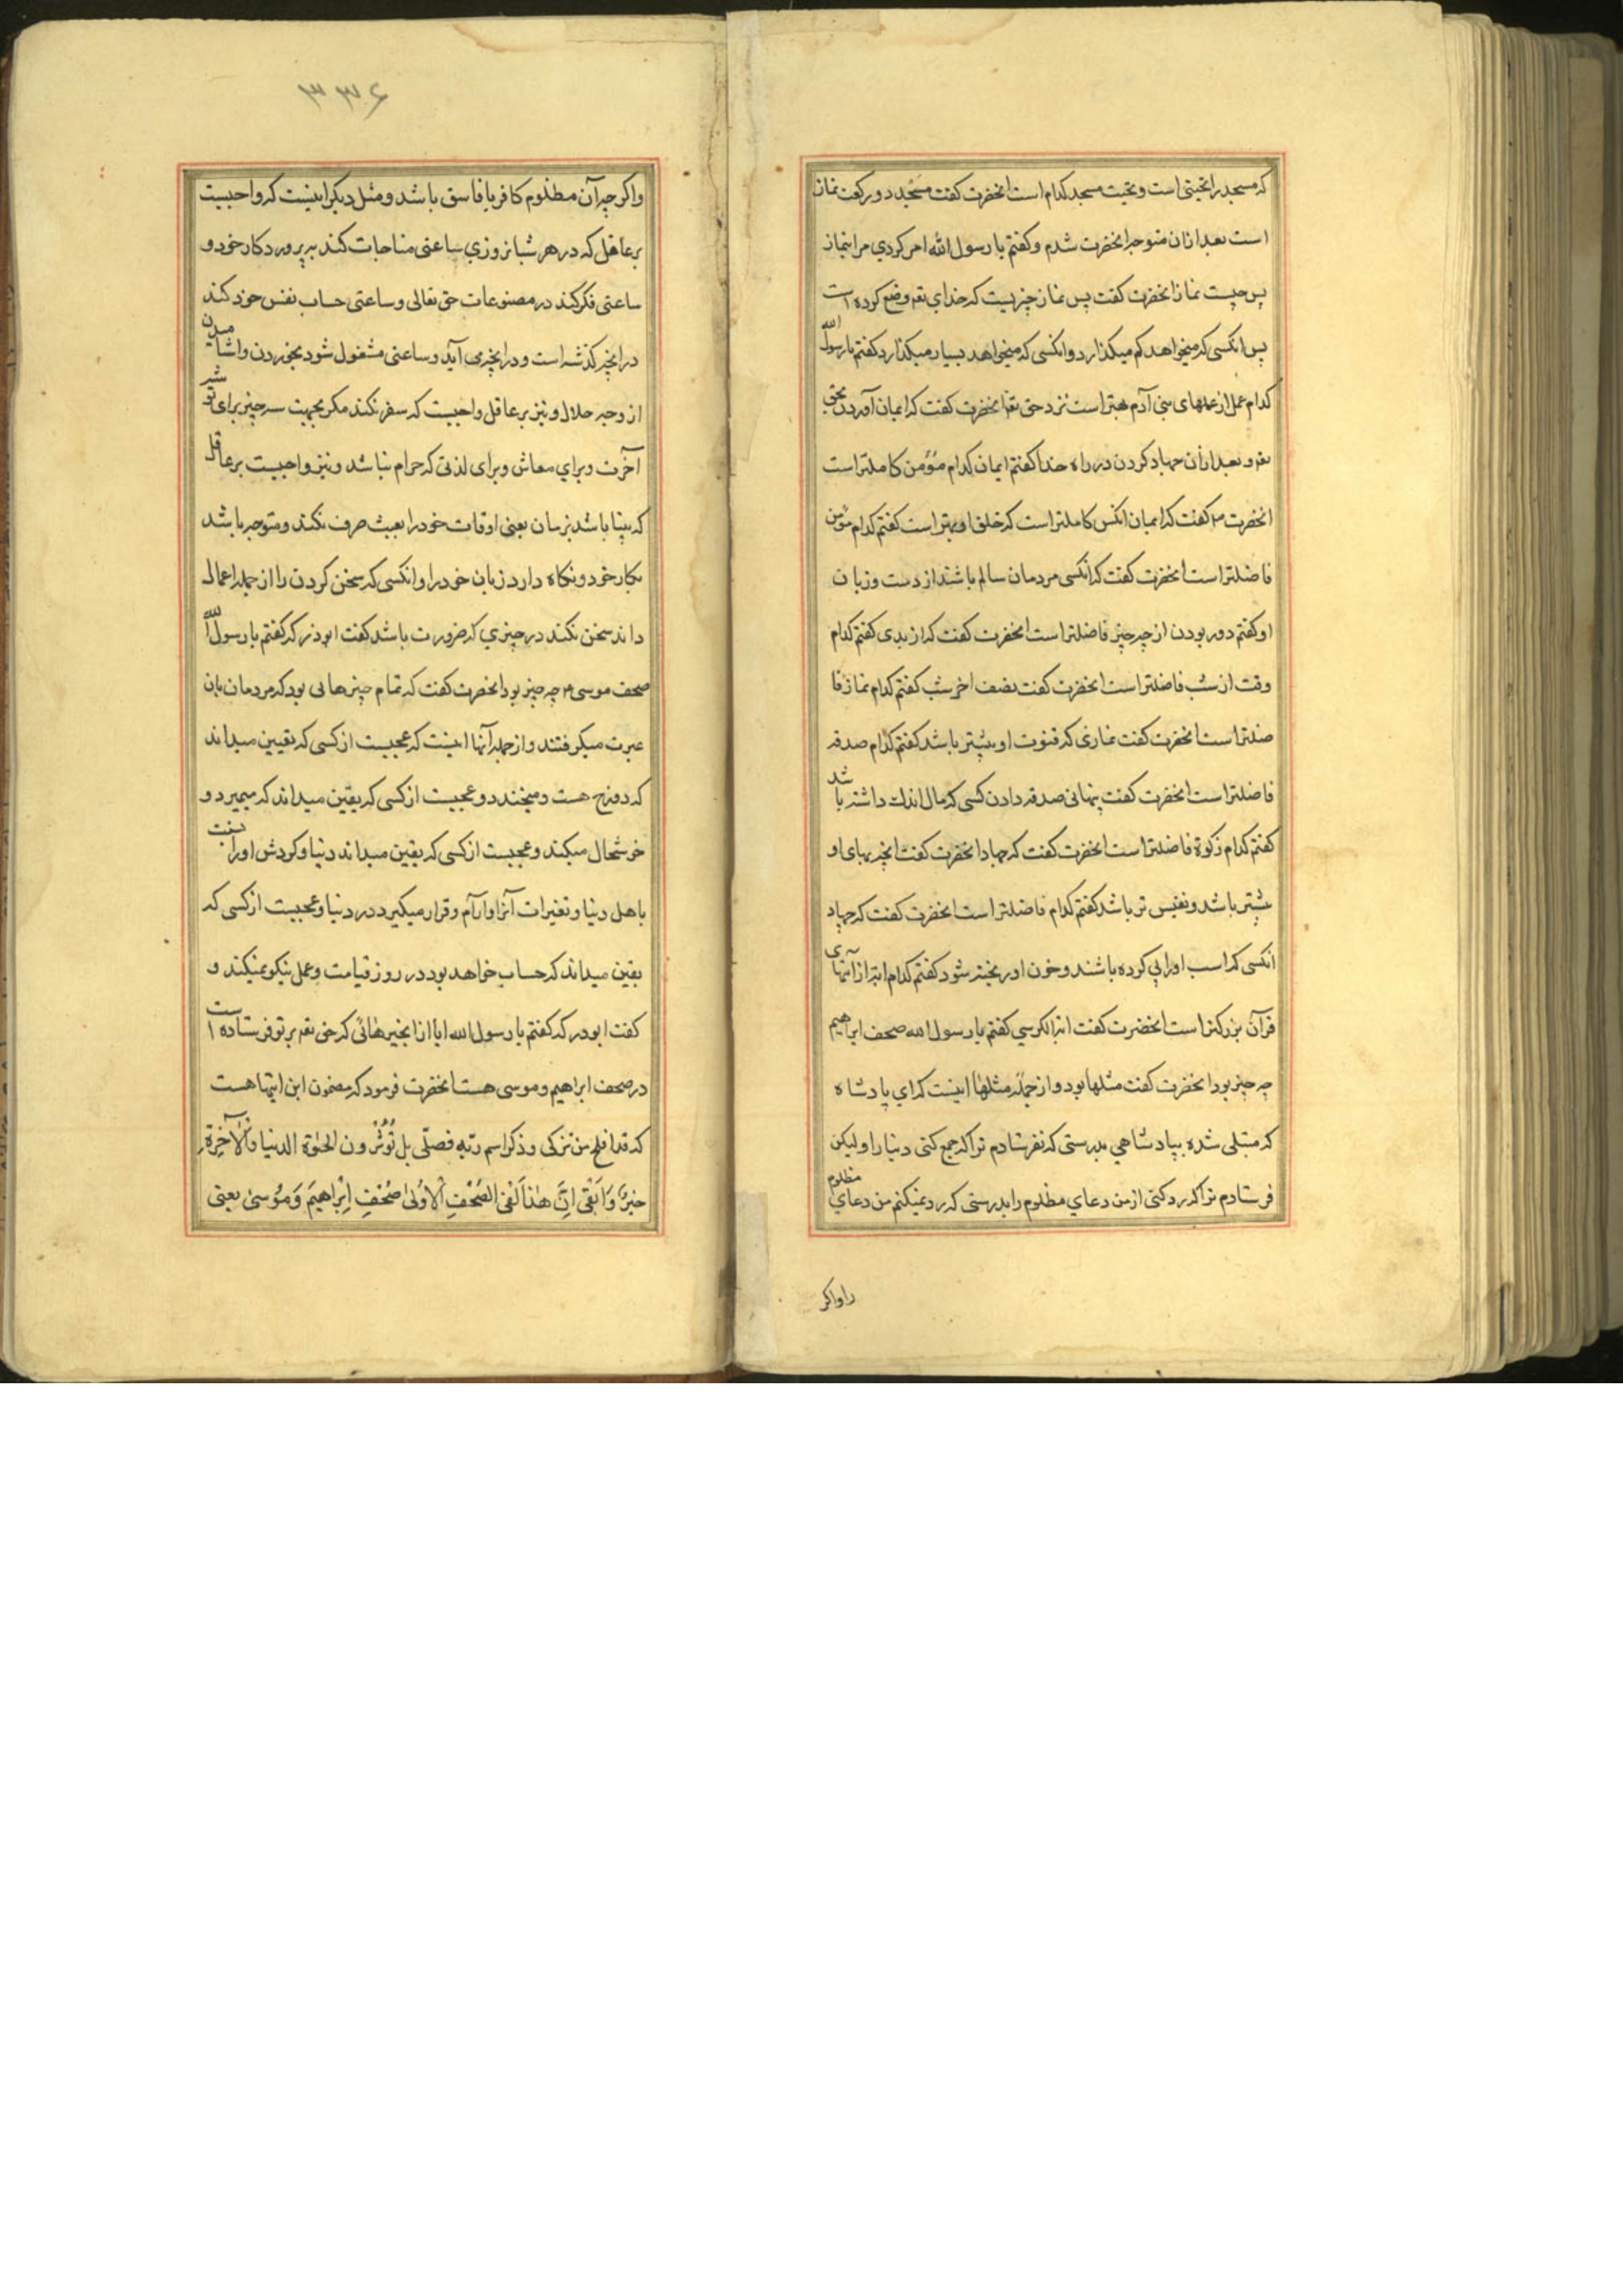 که مسجد را تحیتی است و تحیت مسجد کدام است انحضرت کفت مسجد دو رکعت نماز
است بعد ازان متوجه انحضرت شدم و کفتم یا رسول الله امر کردی مرا بنماز
پس چیست نماز انحضرت کفت پس نماز چیزیست که خدای تعم وضع کرده است
پس انکسی که میخواهد کم میکذارد و انکسی که میخواهد بسیار میکذارد کفتم یا رسول الله
کدام عمل از عملهای بنی آدم بهتر است نزد حق تعم انحضرت کفت که ایمان آوردن بحق
تعم و بعد ازان جهاد کردن در راه خدا کفتم ایمان کدام مؤمن کاملتر است
انحضرت م کفت که ایمان انکس کاملتر است که خلق او بهتر است کفتم کدام مؤمن
فاضلتر است انحضرت کفت که انکسی مردمان سالم باشند از دست و زبان
او کفتم دور بودن از چه چیز فاضلتر است انحضرت کفت که از بدی کفتم کدام
وقت از شب فاضلتر است انحضرت کفت نصف اخر شب کفتم کدام نماز فا
ضلتر است انحضرت کفت نمازی که قنوت او بیشتر باشد کفتم کدام صدقه
فاضلتر است انحضرت کفت پنهانی صدقه دادن کسی که مال اندك داشته باشد
کفتم کدام زکوة فاضلتر است انحضرت کفت که جهاد انحضرت کفت انچه بهای او
بیشتر باشد و نفیس تر باشد کفتم کدام فاضلتر است انحضرت کفت که جهاد
آنکسی که اسب او را پی کرده باشند و خون او ریخته شود کفتم کدام ایة از آیتهای
قرآن بزرکتر است انحضرت کفت ایة الکرسی کفتم یا رسول الله صحف ابراهیم
چه چیز بود انحضرت کفت مثلها بود و از جمله مثلها اینست که ای پادشاه
که مبتلی شده بپادشاهی بدرستی که نفرستادم ترا که جمع کنی دنیا را و لیکن
فرستادم ترا که رد کنی از من دعای مظلوم را بدرستی که رد نمیکنم من دعای مظلوم
را و اکر
۳۳۶
و اکر چه آن مظلوم کافر یا فاسق باشد و مثل دیکر اینست که واجبست
بر عاقل که در هر شبانروزی ساعتی مناجات کند به پروردکار خود و
ساعتی فکر کند در مصنوعات حق تعالی و ساعتی حساب نفس خود کند
در انچه کذشته است و در انچه می آید و ساعتی مشغول شود بخوردن و اشامیدن
از وجه حلال و نیز بر عاقل واجبست که سفر نکند مکر بجهت سه چیز برای توشه
آخرت و برای معاش و برای لذتی که حرام نباشد و نیز واجبست بر عاقل
که بینا باشد بزمان یعنی اوقات خود را بعبث صرف نکند و متوجه باشد
بکار خود و نکاه دارد زبان خود را و انکسی که سخن کردن را از جمله اعمال
داند سخن نکند در چیزی که ضرورت باشد کفت ابوذر که کفتم یا رسول الله
صحف موسی م چه چیز بود انحضرت کفت که تمام چیزهائی بود که مردمان بان
عبرت میکرفتند و از جمله آنها اینست که عجبست از کسی که یقین میداند
که دوزخ هست و میخندد و عجبست از کسی که یقین میداند که میمیرد و
خوشحال میکند و عجبست از کسی که یقین میداند دنیا و کردش او را نسبت
باهل دنیا و تغیرات آنرا و آرام و قرار میکیرد در دنیا و عجبست از کسی که
یقین میداند که حساب خواهد بود در روز قیامت و عمل نیکو نمیکند و
کفت ابوذر که کفتم یا رسول الله ایا از انچیزهائی که حق تعم بر تو فرستاده است
در صحف ابراهیم و موسی هست انحضرت فرمود که مضمون این ایتها هست
که قد افلح من تزکی و ذکر اسم ربّه فصلّی بل تُؤْثُرون الحیٰوة الدنیا وَالآخِرَة
خیرٌ وَاَبْقٰی اِنَّ هٰذا لَفِی الصُحُفِ الاُولیٰ صُحُفِ اِبْراهیمَ وَمُوسیٰ یعنی